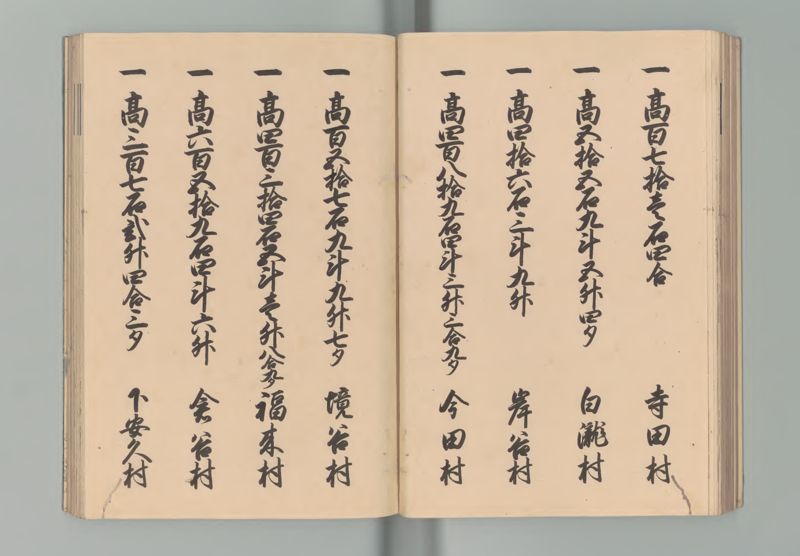 一 高百七拾壱石四合 寺田村
一 高五拾五石九斗五升四夕 白瀧村
一 高四拾六石三斗九升 岸谷村
一 高四百八拾九石四斗三升三合九夕 今田村
一 高百五拾七石九斗九升七夕 境谷村
一 高四百三拾四石五斗壱升八合夕 福来村
一 高六百五拾九石四斗六升 倉谷村
一 高三百七石弐升四合三夕 下安久村